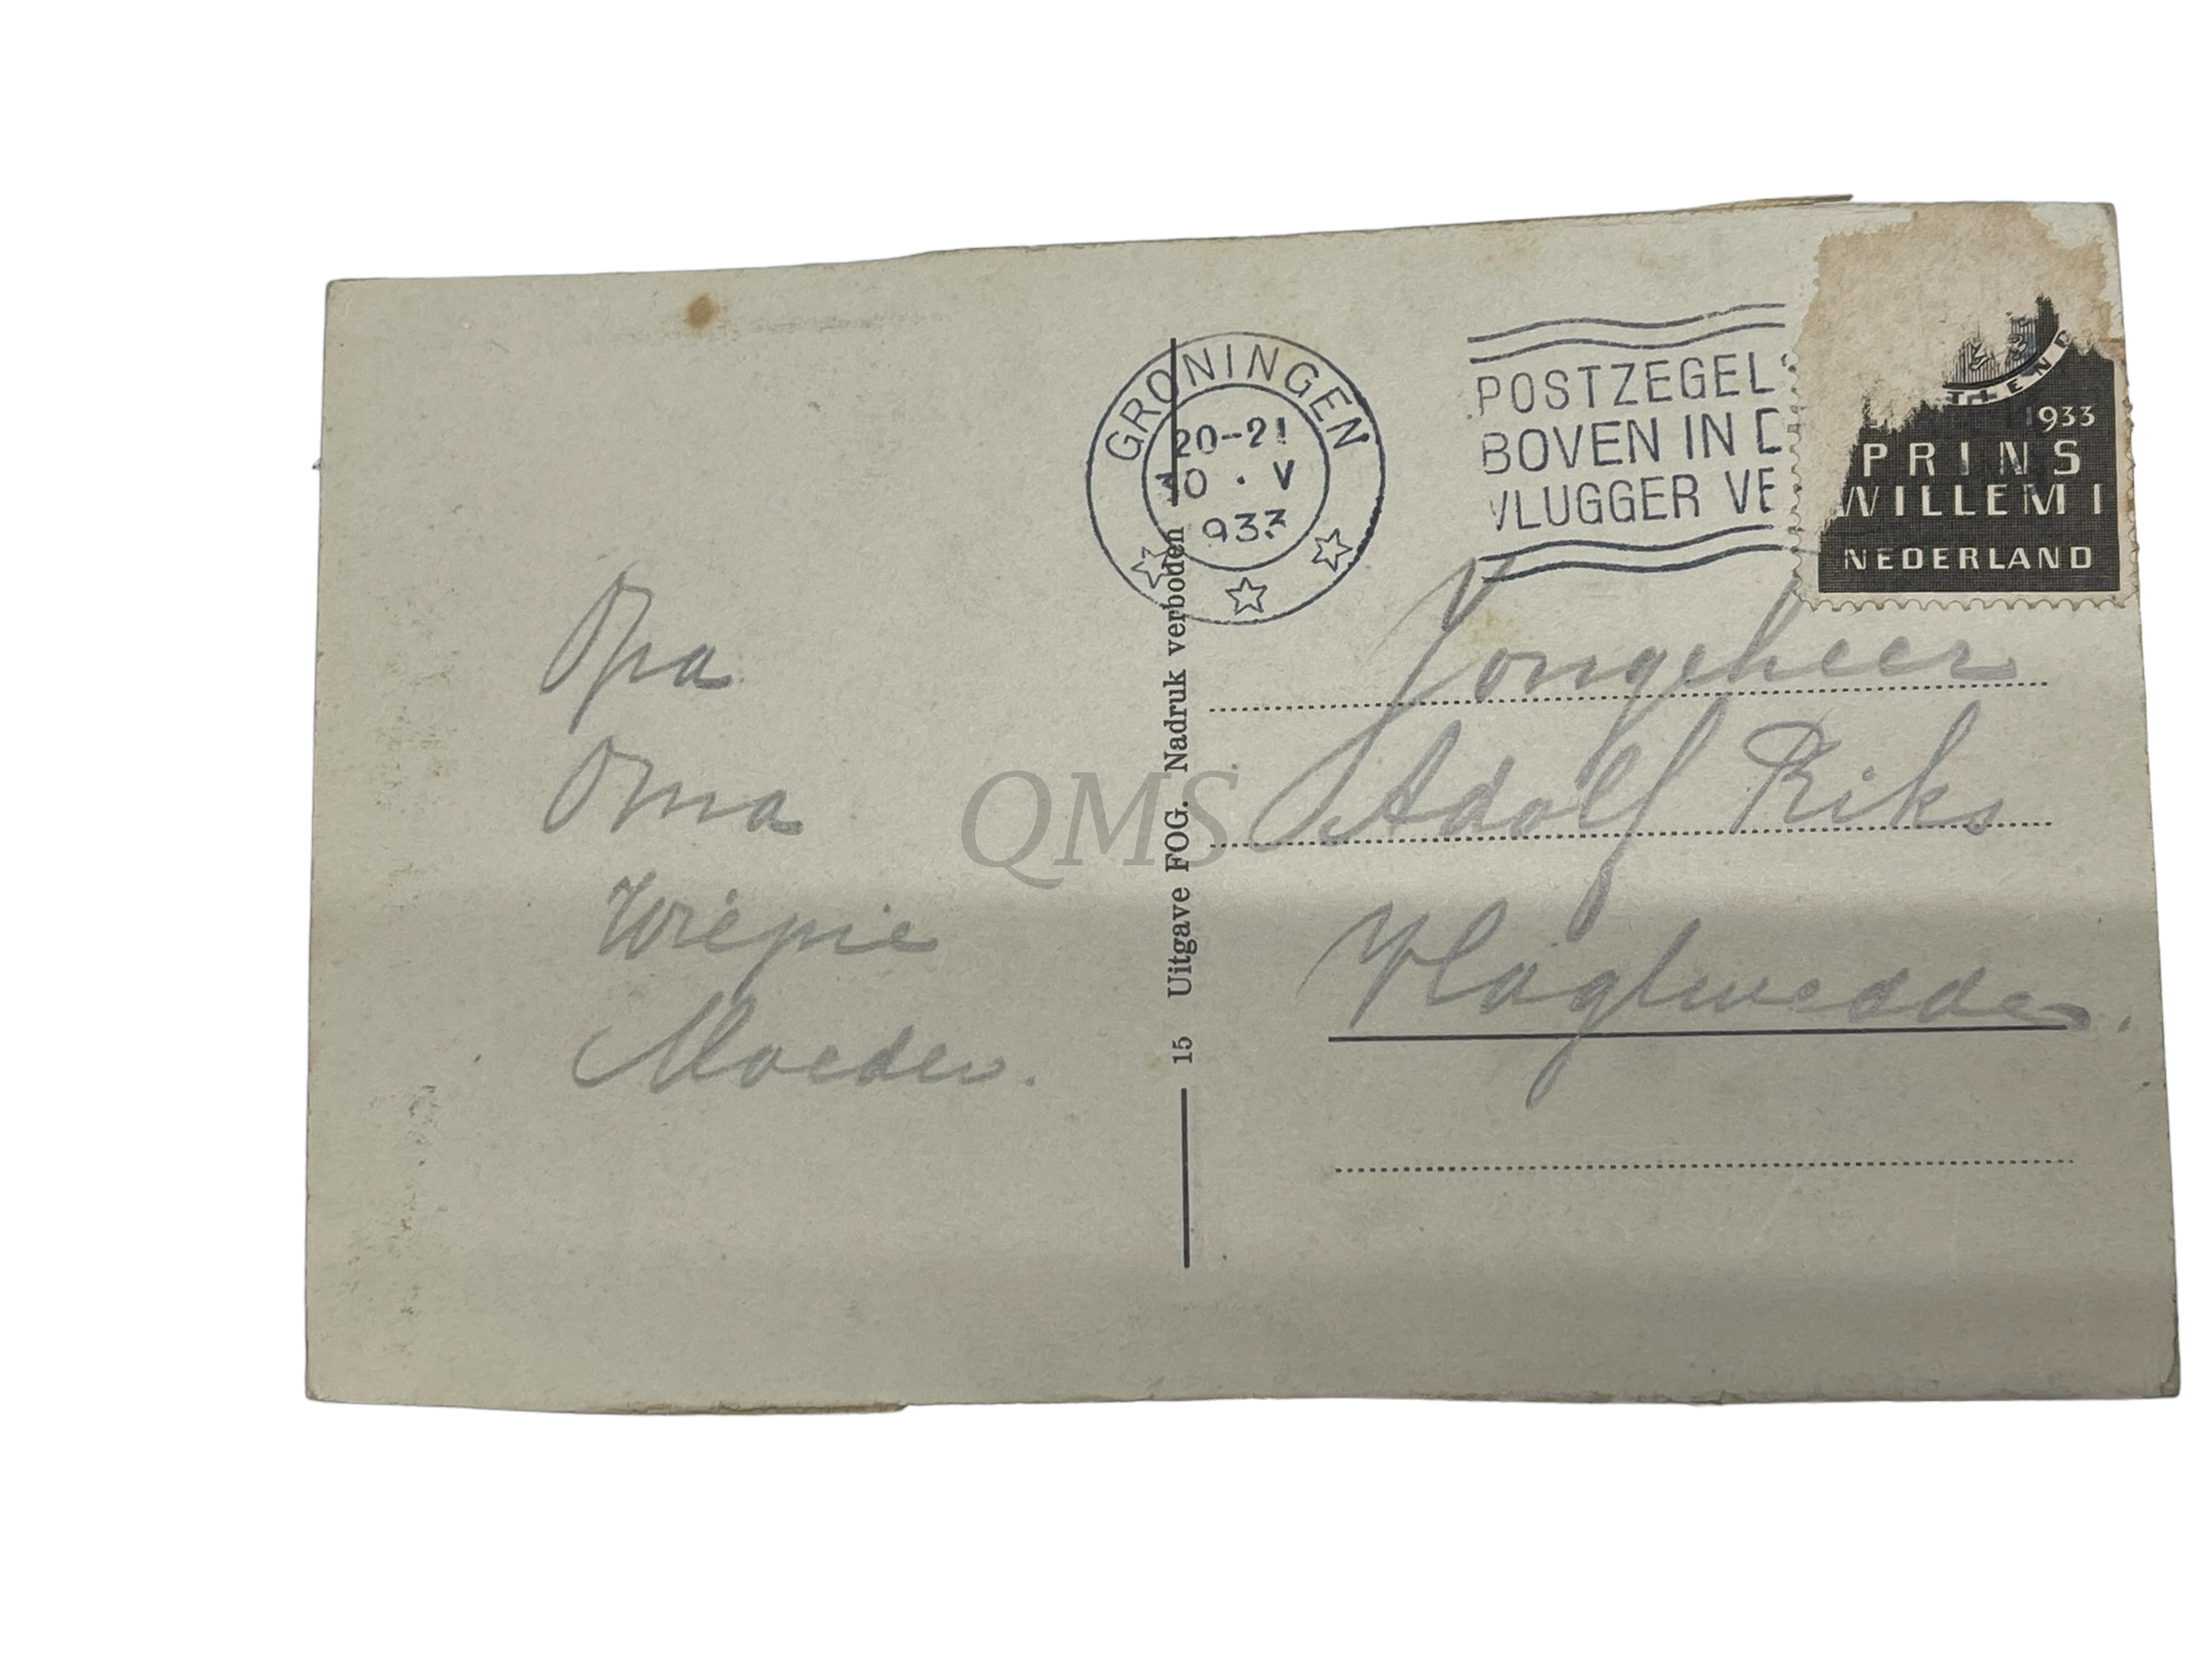 GRONINGEN
20-21
30 . V
933
POSTZEGEL
BOVEN IN D
VLUGGER VE
1933
PRINS
WILLEM I
NEDERLAND
Opa
Oma
Wiepie
Moeder.
15 Uitgave FOG. Nadruk verboden
Jongeheer
Adolf Riks
Vlagtwedde.
QMS